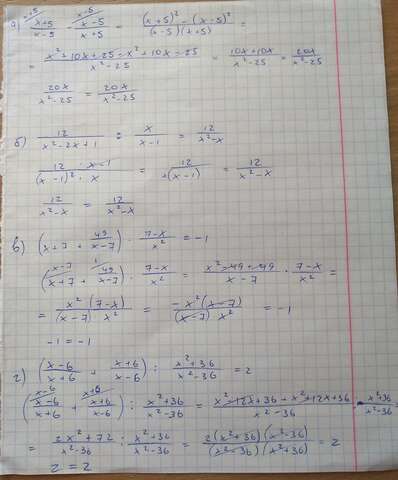 а) (x+5)/(x-5) - (x-5)/(x+5) = ((x+5)² - (x-5)²)/((x-5)(x+5)) =
= (x²+10x+25-x²+10x-25)/(x²-25) = (10x+10x)/(x²-25) = 20x/(x²-25)
20x/(x²-25) = 20x/(x²-25)
б) 12/(x²-2x+1) : x/(x-1) = 12/(x²-x)
(12 · x-1)/((x-1)² · x) = 12/(x(x-1)) = 12/(x²-x)
12/(x²-x) = 12/(x²-x)
в) (x+7 + 49/(x-7)) · (7-x)/x² = -1
(x+7 + 49/(x-7)) · (7-x)/x² = (x²-49+49)/(x-7) · (7-x)/x² =
= (x²(7-x))/((x-7)x²) = (-x²(x-7))/((x-7)x²) = -1
-1 = -1
г) ((x-6)/(x+6) + (x+6)/(x-6)) : (x²+36)/(x²-36) = 2
((x-6)/(x+6) + (x+6)/(x-6)) : (x²+36)/(x²-36) = (x²-12x+36+x²+12x+36)/(x²-36) : (x²+36)/(x²-36) =
= (2x²+72)/(x²-36) : (x²+36)/(x²-36) = (2(x²+36)(x²-36))/((x²-36)(x²+36)) = 2
2 = 2